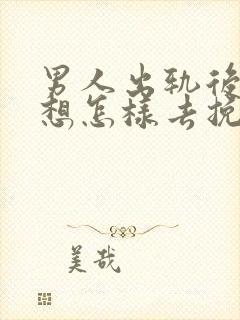 男人出轨後
想怎样去挽
美哉